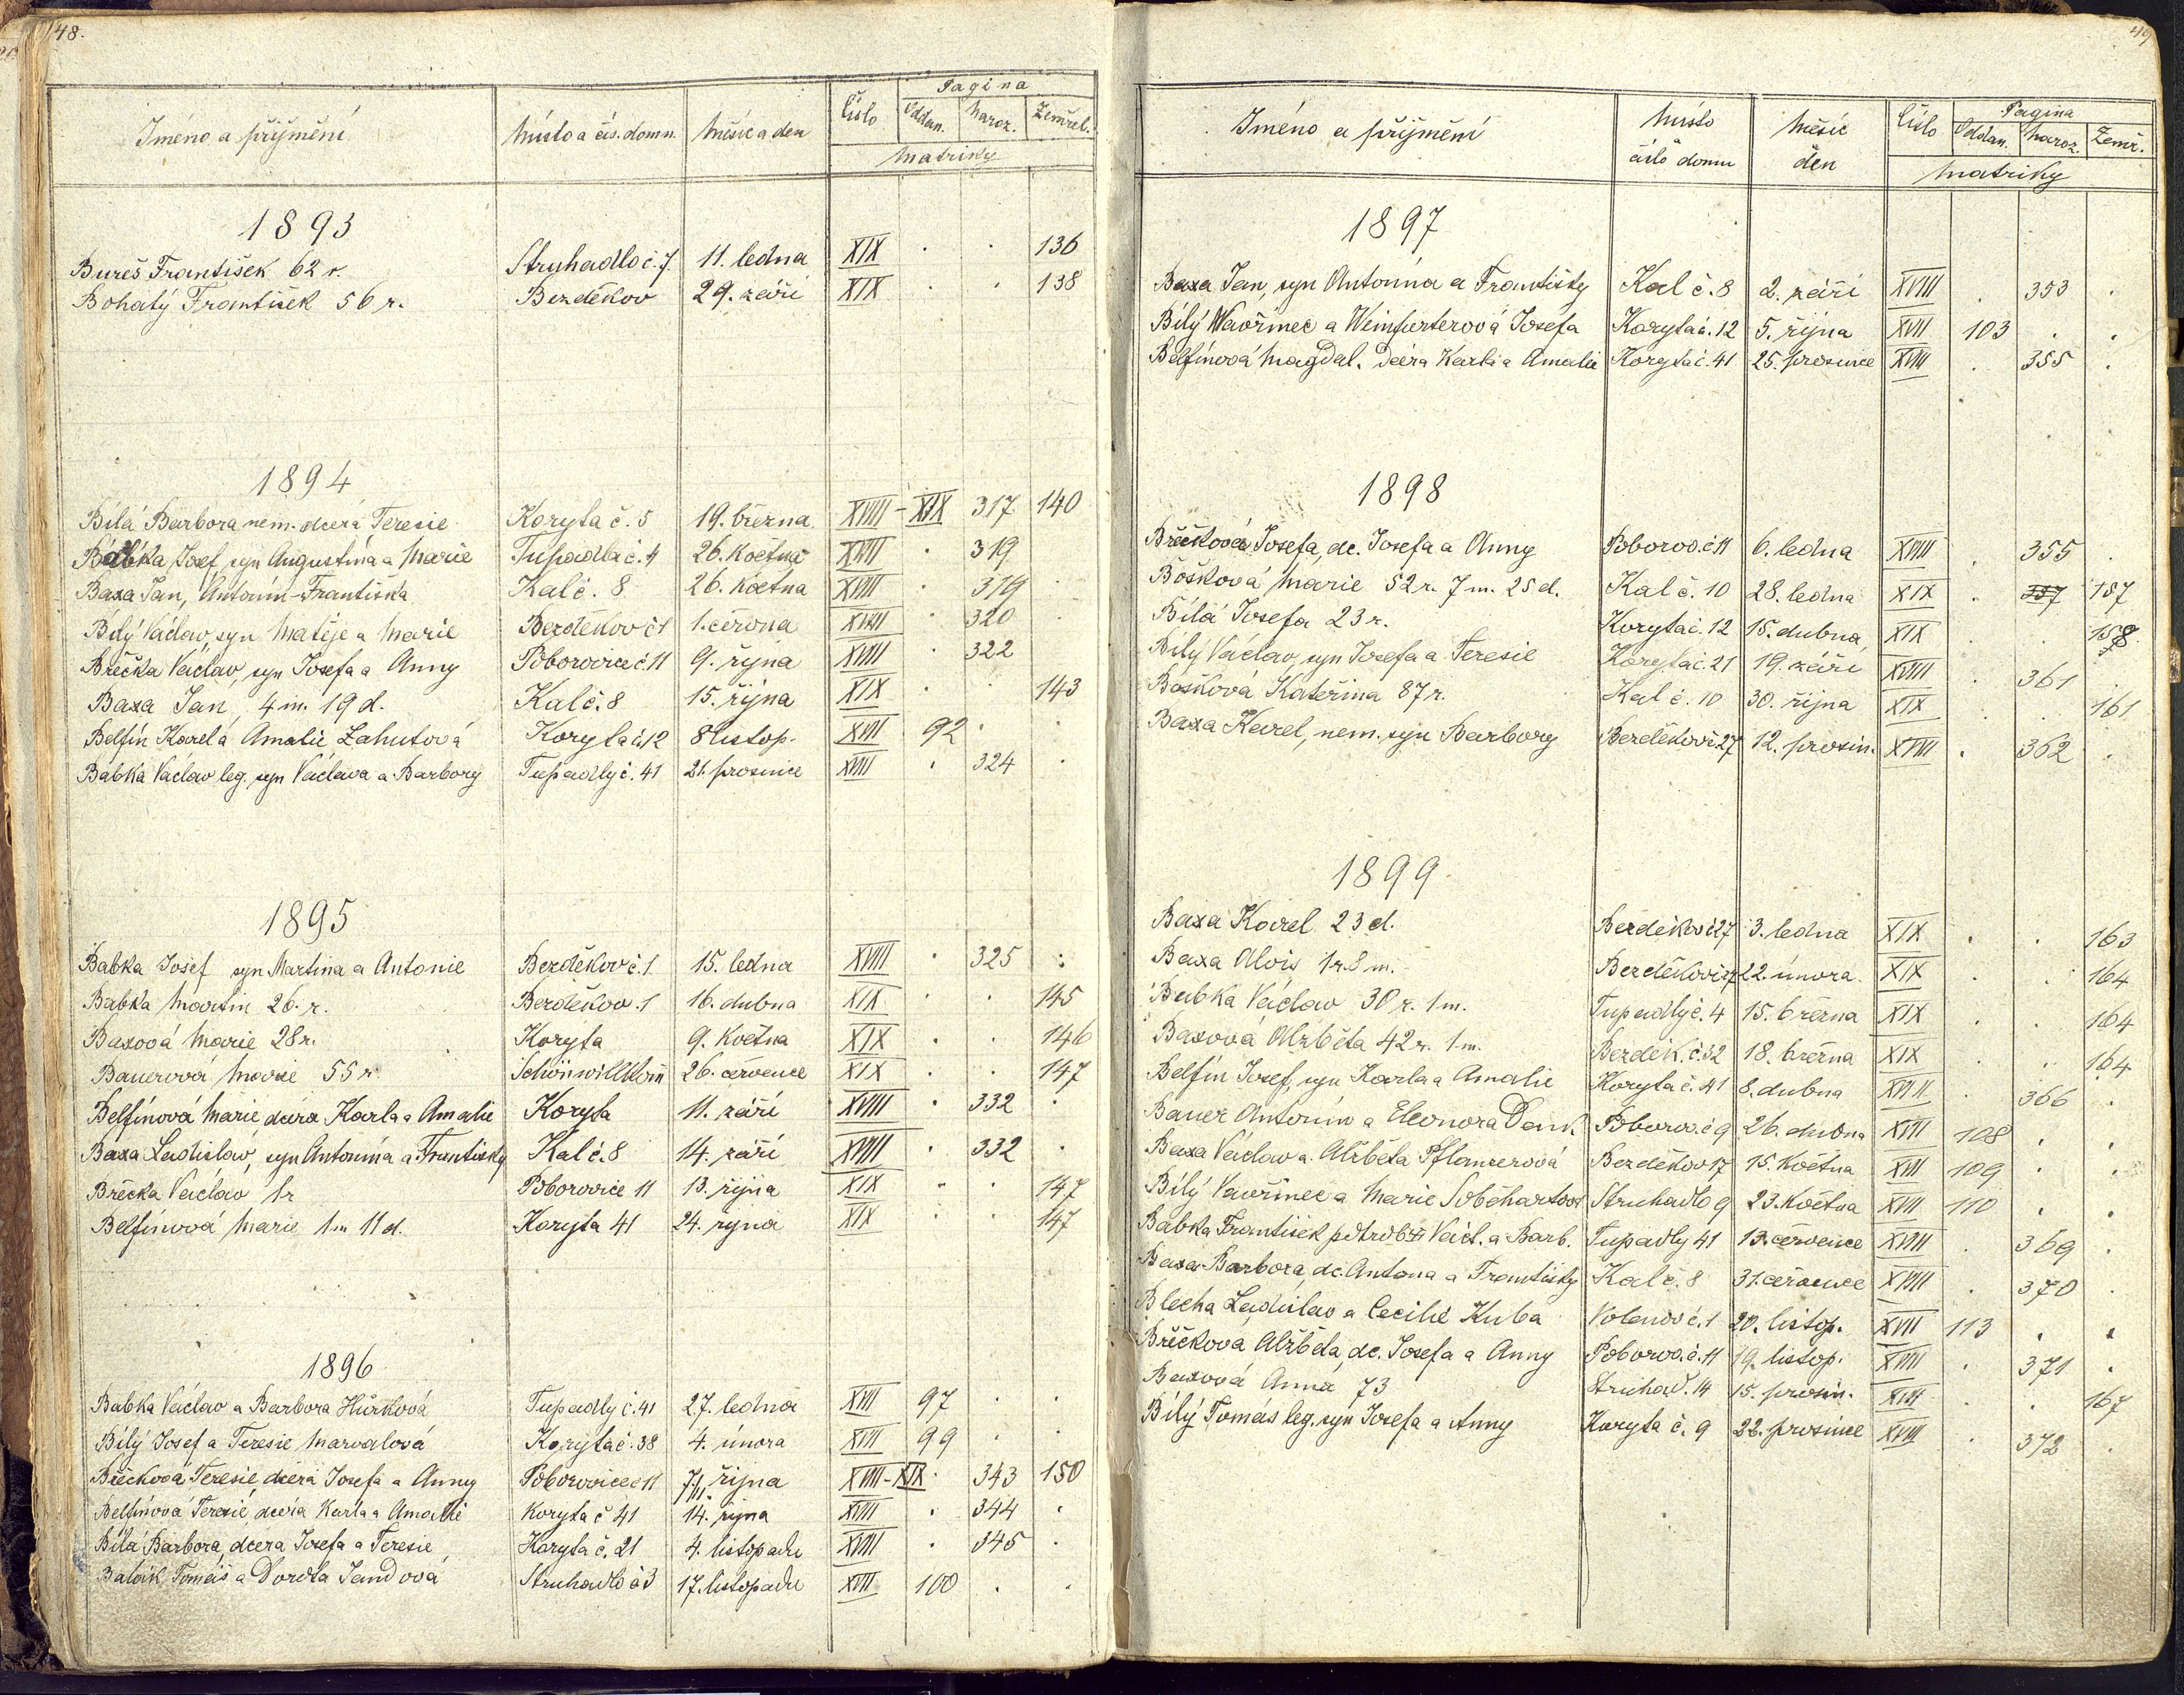 48.
Jméno a příjmění | Místo a čís. domu. | Měsíc a den | Číslo | Pagina
Oddan. | Naroz. | Zemřel.
Matriky
1893
Bureš František 62 r. | Struhadlo č. 7. | 11. ledna | XIX | . | . | 136
Bohatý František 56 r. | Bezděkov | 29. září | XIX | . | . | 138
1894
Bílá Barbora nem. dcera Teresie | Koryta č. 5 | 19. března | XVIII - XIX | 317 | 140
Babka Josef, syn Augustina a Marie | Tupadla č. 4 | 26. Května | XVIII | . | 319
Baxa Jan, Antonín-Františka | Kal č. 8 | 26. Května | XVIII | . | 319 | .
Bílý Václav, syn Matěje a Marie | Bezděkov č 1 | 1. června | XVIII | . | 320 | .
Břečka Václav, syn Josefa a Anny | Poborovice č 11 | 9. října | XVIII | . | 322
Baxa Jan, 4 m. 19 d. | Kal č. 8 | 15. října | XIX | . | . | 143
Belfín Karel a Amalie Zahutová | Koryta č. 12 | 8 listop. | XVII | 92 | . | .
Babka Vaclav leg. syn Václava a Barbory | Tupadly č. 41 | 21. prosince | XVIII | . | 324 | .
1895
Babka Josef syn Martina a Antonie | Bezděkov č. 1 | 15. ledna | XVIII | . | 325 | .
Babka Martin 26. r. | Bezděkov. 1 | 16. dubna | XIX | . | . | 145
Baxová Marie 28 r. | Koryta | 9. Května | XIX | . | . | 146
Bauerová Marie 55 r. | 26. července | XIX | . | . | 147
Belfínová Marie dcera Karla a Amalie | Koryta | 11. září | XVIII | . | 332 | .
Baxa Ladislav, syn Antonína a Františky | Kal č. 8 | 14. září | XVIII | . | 332 | .
Břečka Václav 1 r | Poborovice 11 | 13. října | XIX | . | . | 147
Belfínová Marie 1 m 11 d. | Koryta 41 | 24. října | XIX | . | . | 147
1896
Babka Václav a Barbora Hůrková | Tupadly č. 41 | 27. ledna | XVII | 97 | . | .
Bílý Josef a Teresie Marvalová | Koryta č. 38 | 4. února | XVII | 99 | . | .
Břečková Teresie, dcera Josefa a Anny | Poborovice č 11 | 7/11. října | XVIII-XIX | . | 343 | 150
Belfínová Teresie, dcera Karla a Amalie | Koryta č 41 | 14. října | XVIII | . | 344 | .
Bílá Barbora, dcera Josefa a Teresie | Koryta č. 21 | 4. listopadu | XVIII | . | 345 | .
Tomáš a Dorota Jandová | Struhadlo č 3 | 17. listopadu | XVII | 100 | . | .
49
Jméno a příjmění | Místo číslo domu | Měsíc den | Číslo | Pagina
Oddan. | Naroz. | Zemř.
Matriky
1897
Baxa Jan, syn Antonína a Františky | Kal č. 8 | 2. září | XVIII | . | 353 | .
Bílý Wavřinec a Weinfurterová Josefa | Koryta č. 12 | 5. října | XVII | 103 | . | .
Belfínová Magdal. dcera Karla a Amalie | Koryta č. 41 | 25. prosince | XVIII | . | 355 | .
1898
Břečková Josefa, dc. Josefa a Anny | Poborov. č 11 | 6. ledna | XVIII | . | 355 | .
Bošková Marie 52 r. 7 m. 25 d. | Kal č. 10 | 28. ledna | XIX | . | 157 | 157
Bílá Josefa 23 r. | Koryta č. 12 | 15. dubna | XIX | . | . | 158
Bílý Václav, syn Josefa a Teresie | Koryta č. 21 | 19. září | XVIII | . | 361 | .
Bošková Kateřina 87 r. | Kal č. 10 | 30. října | XIX | . | . | 161
Baxa Karel, nem. syn Barbory | Bezděkov č. 27 | 12. prosin. | XVIII | . | 362 | .
1899
Baxa Karel 23 d. | Bezděkov č 27 | 3. ledna | XIX | . | . | 163
Baxa Alois 1 r. 8 m. | Bezděkov č 27 | 22. února | XIX | . | . | 164
Babka Václav 30 r. 1 m. | Tupadly č. 4 | 15. března | XIX | . | . | 164
Baxová Alžběta 42 r. 1 m. | Bezděk. č. 32 | 18. března | XIX | . | . | 164
Belfín Josef, syn Karla a Amalie | Koryta č. 41 | 8. dubna | XVIII | . | 366 | .
Bauer Antonín a Eleonora Denk | Poborov. č 9 | 26. dubna | XVII | 108 | . | .
Baxa Václav a Alžběta Pflanzerová | Bezděkov 17 | 15. Května | XVII | 109 | . | .
Bílý Vavřinec a Marie | Struhadlo 9 | 23. Května | XVII | 110 | . | .
Babka František Václ. a Barb. | Tupadly 41 | 13. července | XVIII | . | 369 | .
Baxa Barbora, dc. Antona a Františky | Kal č. 8 | 31. července | XVIII | . | 370 | .
Blecha Ladislav a Cecilie Kuba | Volenov č. 1 | 20. listop. | XVII | 113 | . | .
Břečková Alžběta, dc. Josefa a Anny | Poborov. č. 11 | 19. listop. | XVIII | . | 371 | .
Baxová Anna 73 | Struhad. 14 | 15. prosin. | XIX | . | . | 167
Bílý Tomáš leg. syn Josefa a Anny | Koryta č. 9 | 22. prosince | XVIII | . | 372 | .